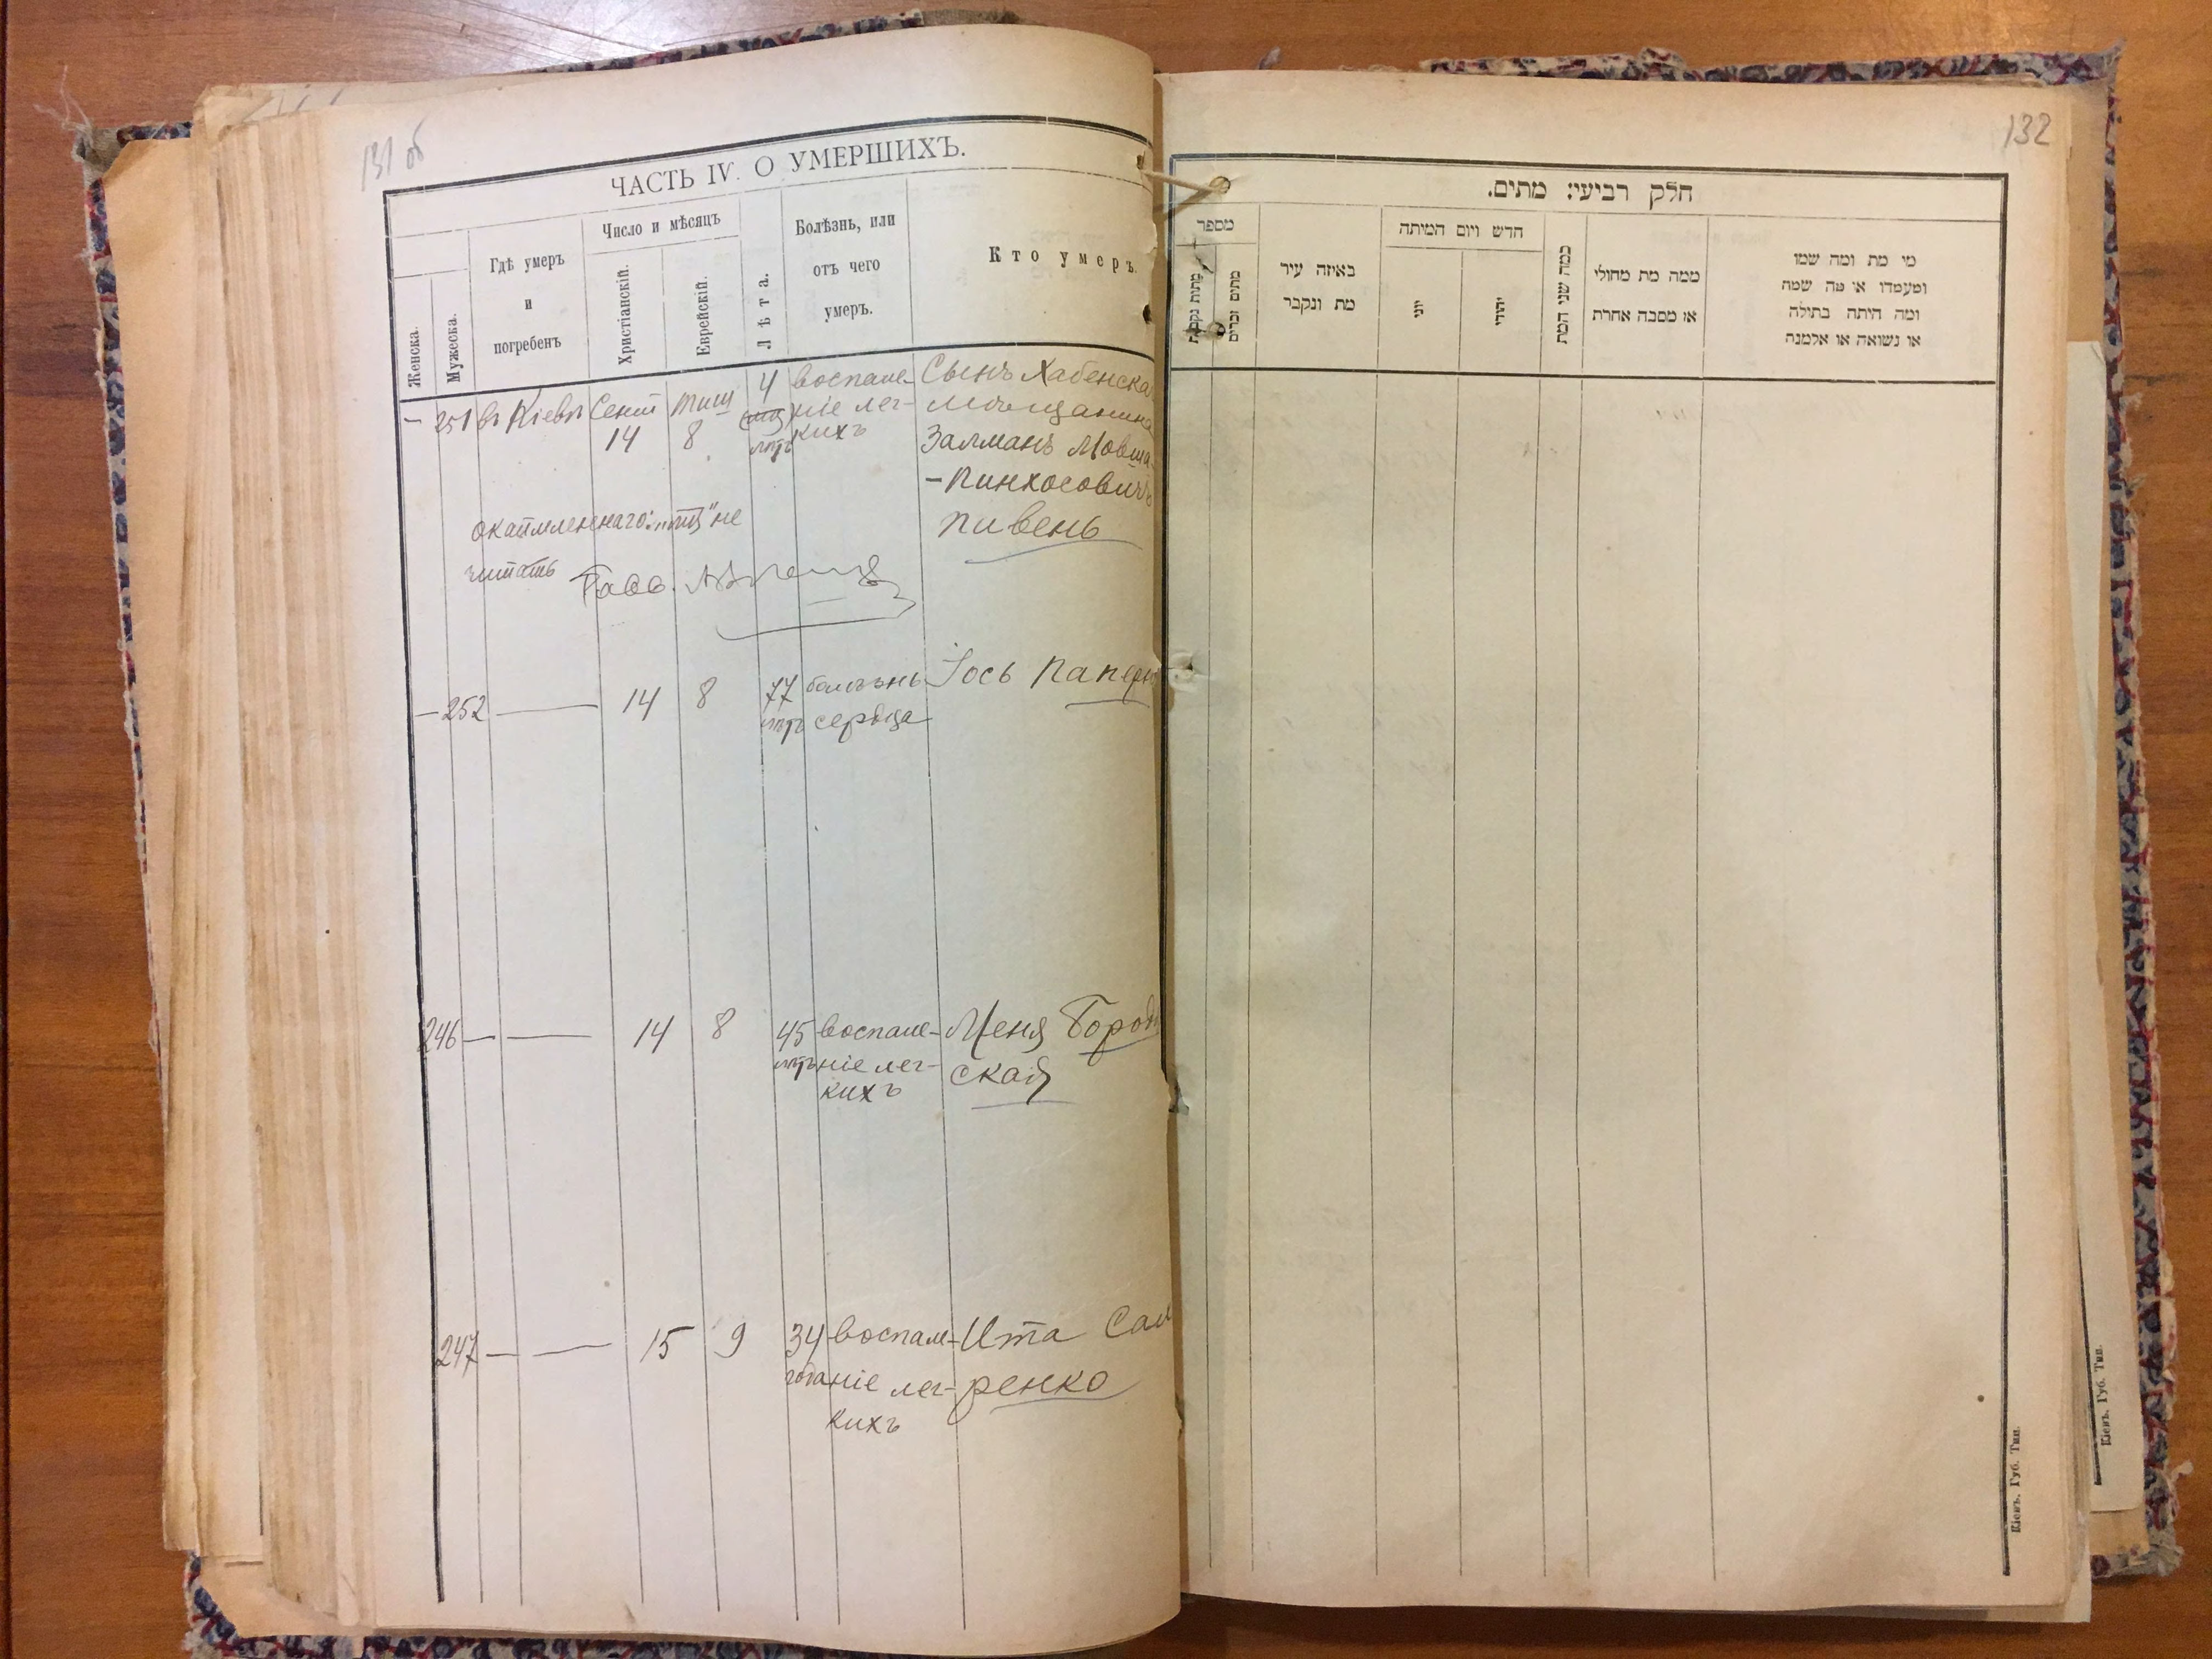 131 об
ЧАСТЬ IV. О УМЕРШИХЪ.
Женска.
Мужеска.
Гдѣ умеръ
и
погребенъ
Число и мѣсяцъ
Христіанскій.
Еврейскій.
Лѣта.
Болѣзнь, или
отъ чего
умеръ.
Кто умеръ.
— 251 въ Кіевѣ Сент Тиш 4 воспале- Сынъ Хабенска
14 8 лѣтъ ніе лег- мѣщанина
кихъ Залманъ Мовша-
-Пинхосовичъ
Пивень
окаймленнаго: не
читать Равв.
— 252 — 14 8 77 болѣзнь Іось Паперн
лѣтъ сердца
246 — — 14 8 45 воспале- Меня Город
лѣтъ ніе лег- ская
кихъ
247 — — 15 9 34 воспале- Ита Сам
года ніе лег- ренко
кихъ
132
חלק רביעי: מתים.
מספר
מתות נקבות
מתים זכרים
באיזה עיר
מת ונקבר
חדש ויום המיתה
יוני
יהודי
כמה שני המת
ממה מת מחולי
או מסבה אחרת
מי מת ומה שמו
ומעמדו או מה שמה
ומה היתה בתולה
או נשואה או אלמנה
Кіевъ. Губ. Тип.
Кіевъ. Губ. Тип.